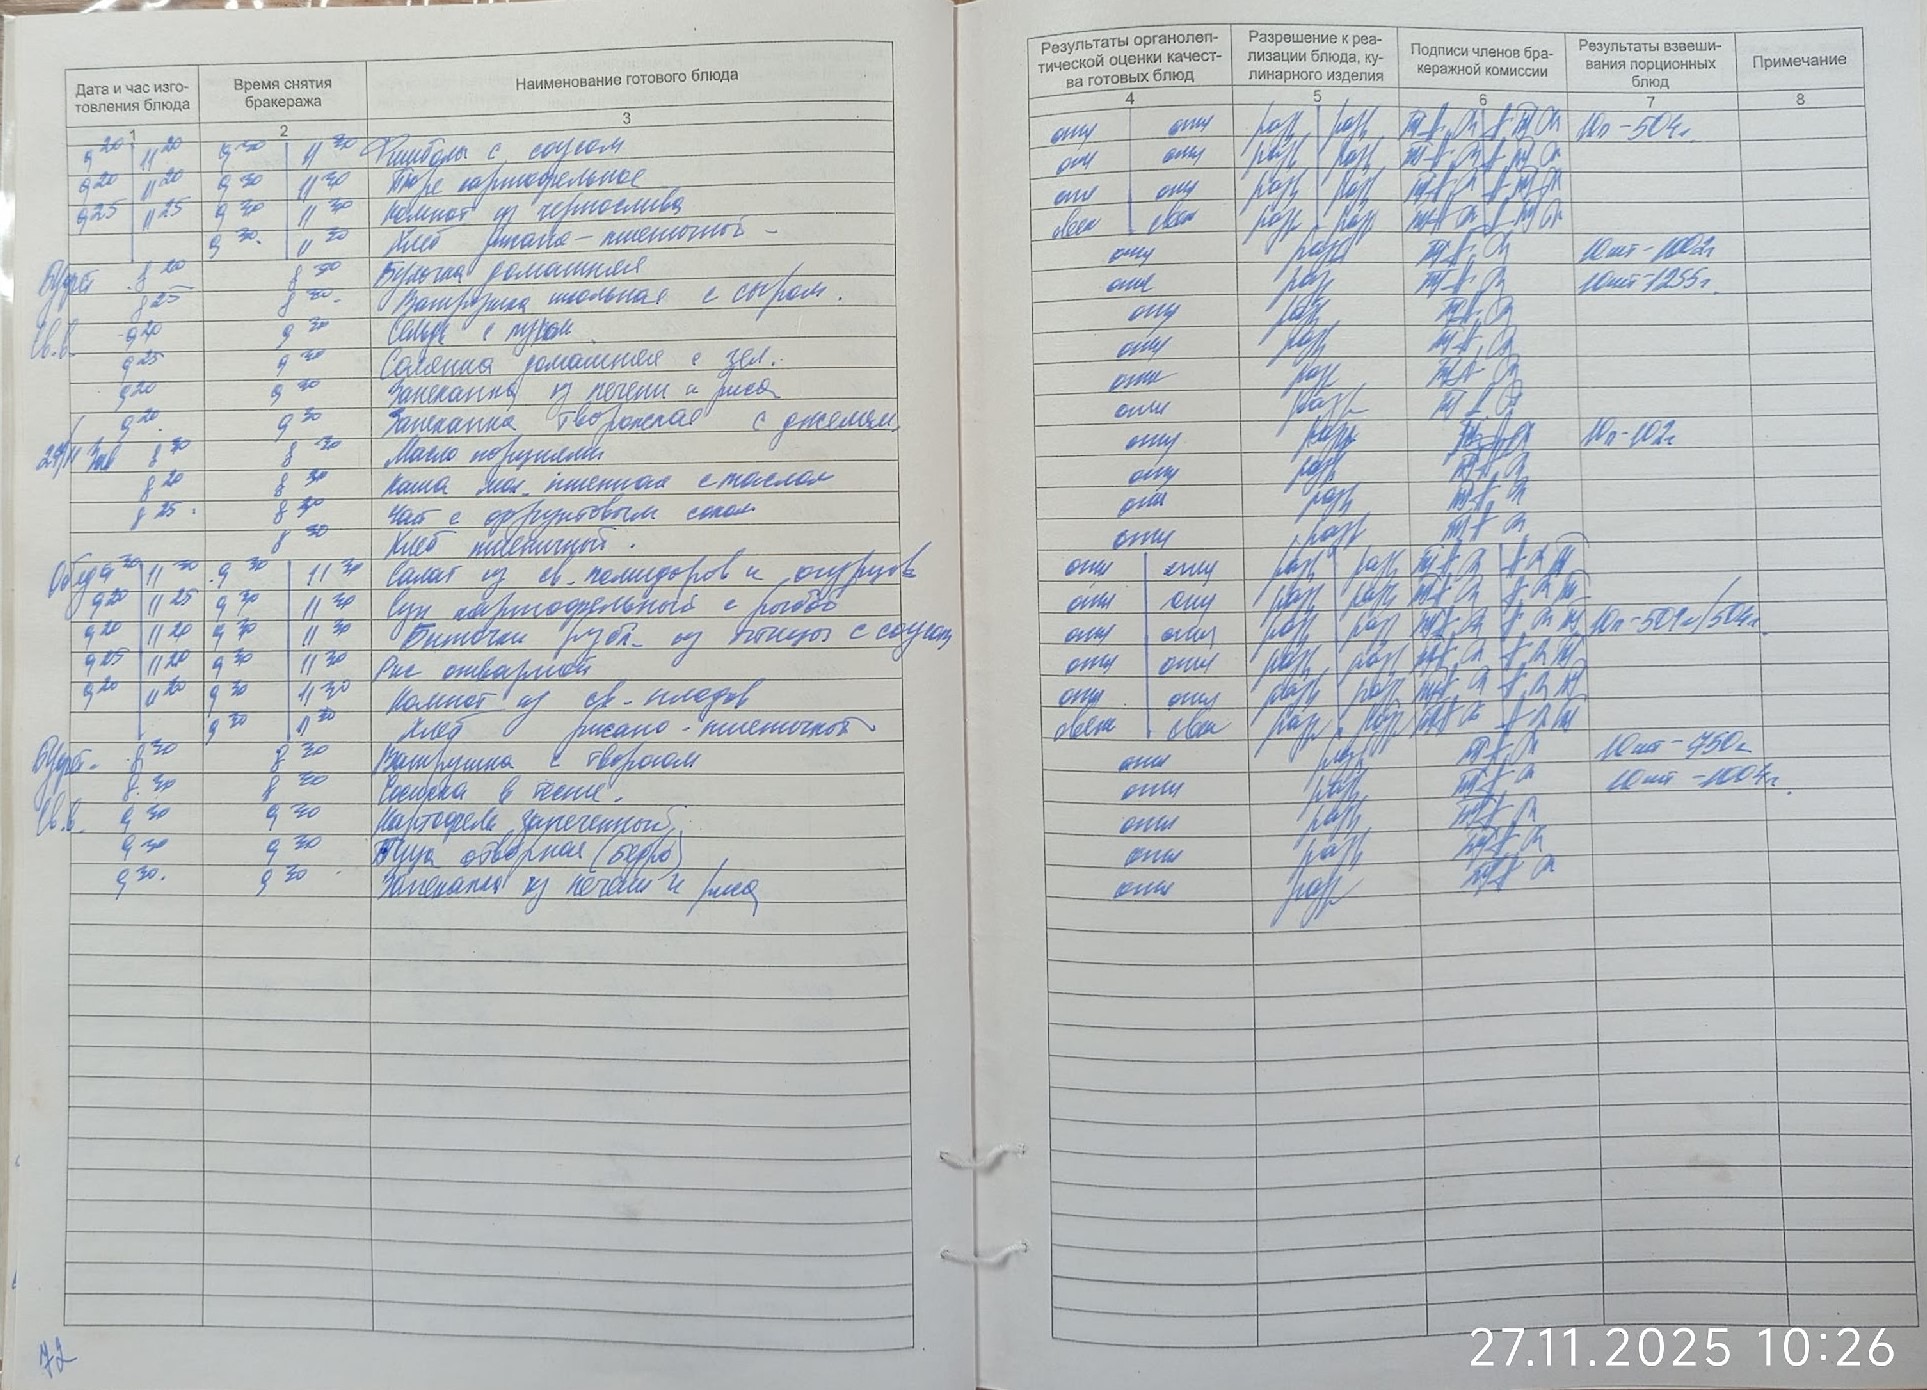 Дата и час изго-
товления блюда
Время снятия
бракеража
Наименование готового блюда
1 2 3
9 20 11 20 9 30 11 30 Фишболы с соусом
9 20 11 20 9 30 11 30 Пюре картофельное
9 25 11 25 9 30 11 30 Компот из чернослива
9 30 11 30 Хлеб ржано-пшеничной
Буфет 8 20 8 30 Булочка домашняя
8 25 8 30 Ватрушка школьная с сыром.
Св.в. 9 20 9 30 Сельдь с луком
9 25 9 30 Солянка домашняя с зел.
9 20 9 30 Запеканка из печени и риса
9 20 9 30 Запеканка творожная с джемом
8 30 8 30 Масло порциями
8 20 8 30 Каша мол. пшенная с маслом
8 25 8 30 Чай с фруктовым соком
8 30 Хлеб пшеничный.
Обед 9 30 11 30 9 30 11 30 Салат из св. помидоров и огурцов
9 20 11 25 9 30 11 30 Суп картофельный с рыбой
9 20 11 20 9 30 11 30 Биточки рубл. из птицы с соусом
9 25 11 20 9 30 11 30 Рис отварной
9 20 11 20 9 30 11 30 Компот из св. плодов
9 30 11 30 Хлеб ржано-пшеничной
Буфет. 8 30 8 30 Ватрушка с творогом
8 30 8 30 Сосиска в тесте.
Св.в. 9 30 9 30 Картофель запеченный
9 30 9 30 Птица отварная (бедро)
9 30. 9 30 Запеканка из печени и риса
72
Результаты органолеп-
тической оценки качест-
ва готовых блюд
Разрешение к реа-
лизации блюда, ку-
линарного изделия
Подписи членов бра-
керажной комиссии
Результаты взвеши-
вания порционных
блюд
Примечание
4 5 6 7 8
отл отл разр разр 10п-504г
отл отл разр разр
отл отл разр разр
свеж свеж разр разр
отл разр 10шт-1002г
отл разр 10шт-1255г.
отл разр
отл разр
отл разр
отл разр
отл разр 10п-102г
отл разр
отл разр
отл разр
отл отл разр разр
отл отл разр разр
отл отл разр разр 10п-501г/504г.
отл отл разр разр
отл отл разр разр
свеж свеж разр разр
отл разр 10шт-750г
отл разр 10шт-1004г.
отл разр
отл разр
отл разр
27.11.2025 10:26